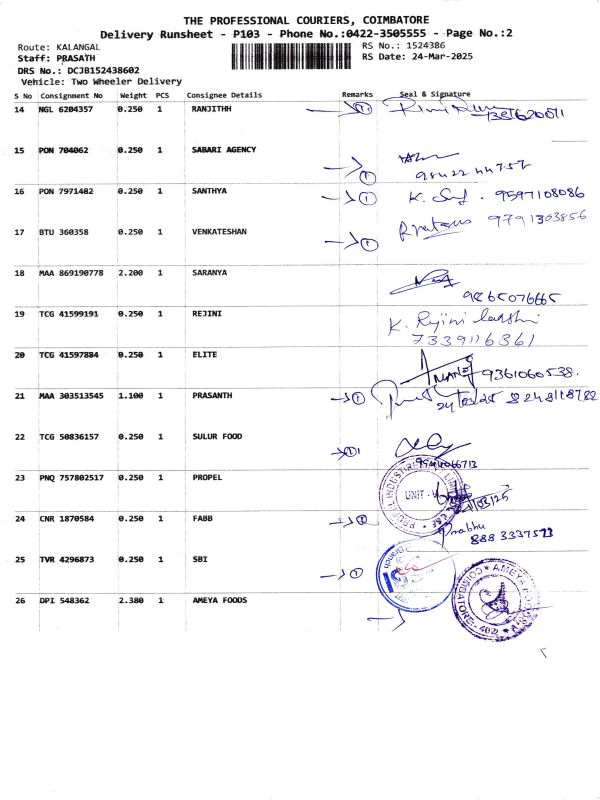 THE PROFESSIONAL COURIERS, COIMBATORE
Delivery Runsheet - P103 - Phone No.:0422-3505555 - Page No.:2
Route: KALANGAL RS No.: 1524386
Staff: PRASATH RS Date: 24-Mar-2025
DRS No.: DCJB152438602
Vehicle: Two Wheeler Delivery
S No Consignment No Weight PCS Consignee Details Remarks Seal & Signature
14 NGL 6204357 0.250 1 RANJITHH
15 PON 704062 0.250 1 SABARI AGENCY
16 PON 7971482 0.250 1 SANTHYA K. 9597108086
17 BTU 360358 0.250 1 VENKATESHAN 9791303856
18 MAA 869190778 2.200 1 SARANYA
9865076665
19 TCG 41599191 0.250 1 REJINI K. Rejini
7339116361
20 TCG 41597884 0.250 1 ELITE 9361060538.
21 MAA 303513545 1.100 1 PRASANTH
22 TCG 50836157 0.250 1 SULUR FOOD
23 PNQ 757802517 0.250 1 PROPEL UNIT -
24 CNR 1870584 0.250 1 FABB Prabhu
888 3337573
25 TVR 4296873 0.250 1 SBI
26 DPI 548362 2.380 1 AMEYA FOODS AMEYA COIMBATORE